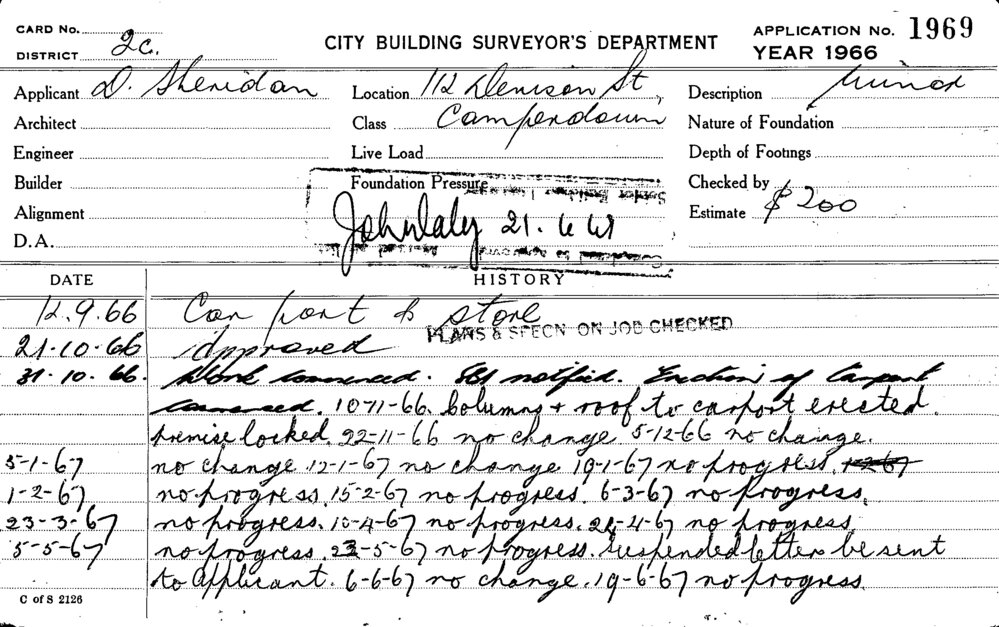 CARD No.
DISTRICT 2c.
CITY BUILDING SURVEYOR'S DEPARTMENT
APPLICATION No. 1969
YEAR 1966
Applicant D. Sheridan
Location 112 Denison St,
Description Minor
Architect
Class Camperdown
Nature of Foundation
Engineer
Live Load
Depth of Footings
Builder
Foundation Pressure
Checked by
Alignment
John Daly 21. 6 67
Estimate $ 200
D.A.
DATE
HISTORY
12.9.66 Car port & store
PLANS & SPECN ON JOB CHECKED
21.10.66 Approved
31.10.66. Work commenced. notified. Erection of Carport
commenced. 10-11-66. Columns + roof to carport erected.
premise locked. 22-11-66 no change. 5-12-66 no change.
5-1-67 no change. 12-1-67 no change. 19-1-67 no progress.
1-2-67 no progress. 15-2-67 no progress. 6-3-67 no progress.
23-3-67 no progress. 10-4-67 no progress. 21-4-67 no progress.
5-5-67 no progress. 23-5-67 no progress. Suspended letter be sent
to applicant. 6-6-67 no change. 19-6-67 no progress.
C of S 2126